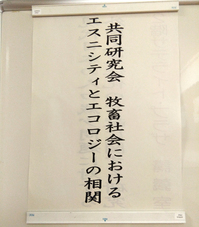 共同研究会　牧畜社会における
エスニシティとエコロジーの相関